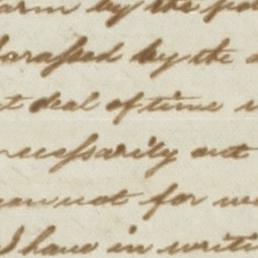 arm by the po
brassed by the
t deal of time
necessarily out
cannot for
I have in writi